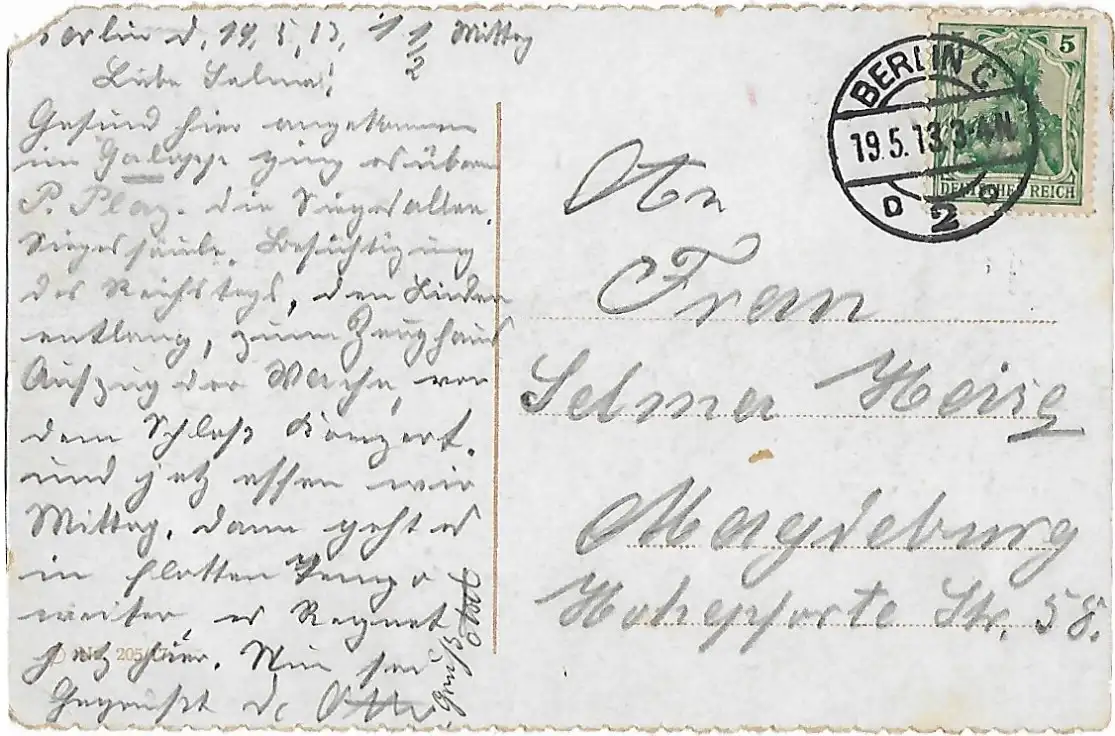 Berlin d. 19.5.13. 1 1/2 Mittag
Liebe Selma!
Gesund hier angekommen
im Galopp ging es übern
P. Plaz. die Siegesallee,
Siegessäule, Besichtigung
des Reichstags, den Linden
entlang, zum Zeughaus
Aufzug der Wache, vor
dem Schloß Konzert.
und jetz essen wir
Mittag, dann geht es
in flotten Tempo
weiter, es Regnet
jetz hier. Nun sei
Gegrüßt d. Otto
Gruß
No. 205/17
BERLIN C
19.5.13.3-4N
2
5
DEUTSCHES REICH
An
Frau
Selma Heise
Magdeburg
Hohepforte Str. 58.